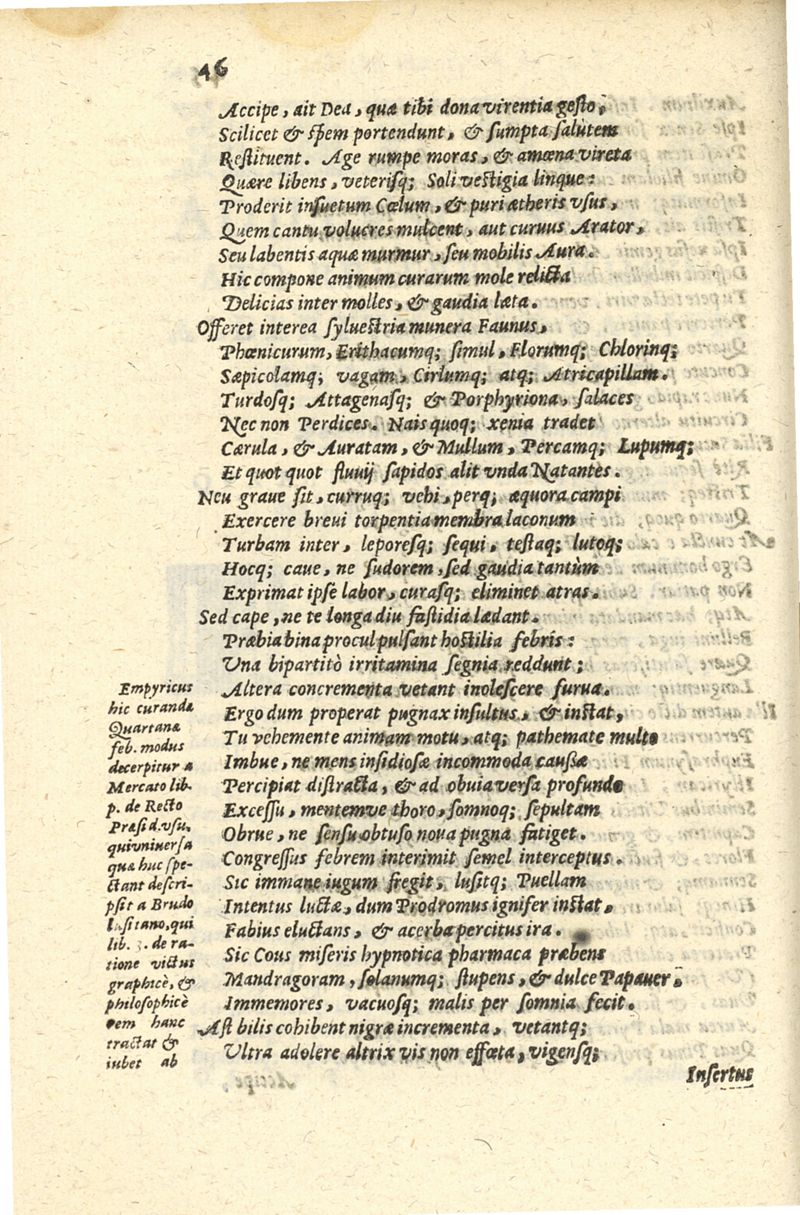 46
Accipe, ait Dea, quæ tibi dona virentia gesto,
Scilicet & spem portendunt, & sumpta salùtem
Restituent. Age rumpe moras, & amœna vireta
Quære libens, veterisq; Soli vestigia linque:
Proderit insuetum Cœlum, & puri ætheris vsus,
Quem cantu volucres mulcent, aut curuus Arator,
Seu labentis aquæ murmur, seu mobilis Aura.
Hic compone animum curarum mole relicta
Delicias inter molles, & gaudia læta.
Offeret interea syluestria munera Faunus,
Phœnicurum, Erithacumq; simul, Florumq; Chlorinq;
Sæpicolamq; vagam, Cirlumq; atq; Atricapillam.
Turdosq; Attagenasq; & Porphyriona, salaces
Nec non Perdices. Nais quoq; xenia tradet
Cærula, & Auratam, & Mullum, Percamq; Lupumq;
Et quot quot fluuij sapidos alit vnda Natantes.
Neu graue sit, curruq; vehi, perq; æquora campi
Exercere breui torpentia membra laconum
Turbam inter, leporesq; sequi, testaq; lutoq;
Hocq; caue, ne sudorem, sed gaudia tantùm
Exprimat ipse labor, curasq; eliminet atras.
Sed cape, ne te longa diu fastidia lædant.
Præbia bina procul pulsant hostilia febris:
Vna bipartitò irritamina segnia reddunt;
Altera concrementa vetant inolescere furua.
Ergo dum properat pugnax insultus, & instat,
Tu vehemente animam motu, atq; pathemate multo
Imbue, ne mens insidiosæ incommoda caussæ
Percipiat distracta, & ad obuia versa profundo
Excessu, mentemve thoro, somnoq; sepultam
Obrue, ne sensu obtuso noua pugna fatiget.
Congressus febrem interimit semel interceptus.
Sic immane iugum fregit, lusitq; Puellam
Intentus luctæ, dum Prodromus ignifer instat,
Fabius eluctans, & acerba percitus ira.
Sic Cous miseris hypnotica pharmaca præbens
Mandragoram, solanumq; stupens, & dulce Papauer,
Immemores, vacuosq; malis per somnia fecit.
Ast bilis cohibent nigræ incrementa, vetantq;
Ultra adolere altrix vis non effœta, vigensq;
Insertus
Empyricus
hic curandæ
Quartanæ
feb. modus
decerpitur a
Mercato lib.
p. de Recto
Præsid. vsu,
qui vniuersa
quæ huc spe-
ctant descri-
psit a Brudo
lusitano, qui
lib. 3. de ra-
tione victus
graphicè, &
philosophicè
rem hanc
tractat &
iubet ab